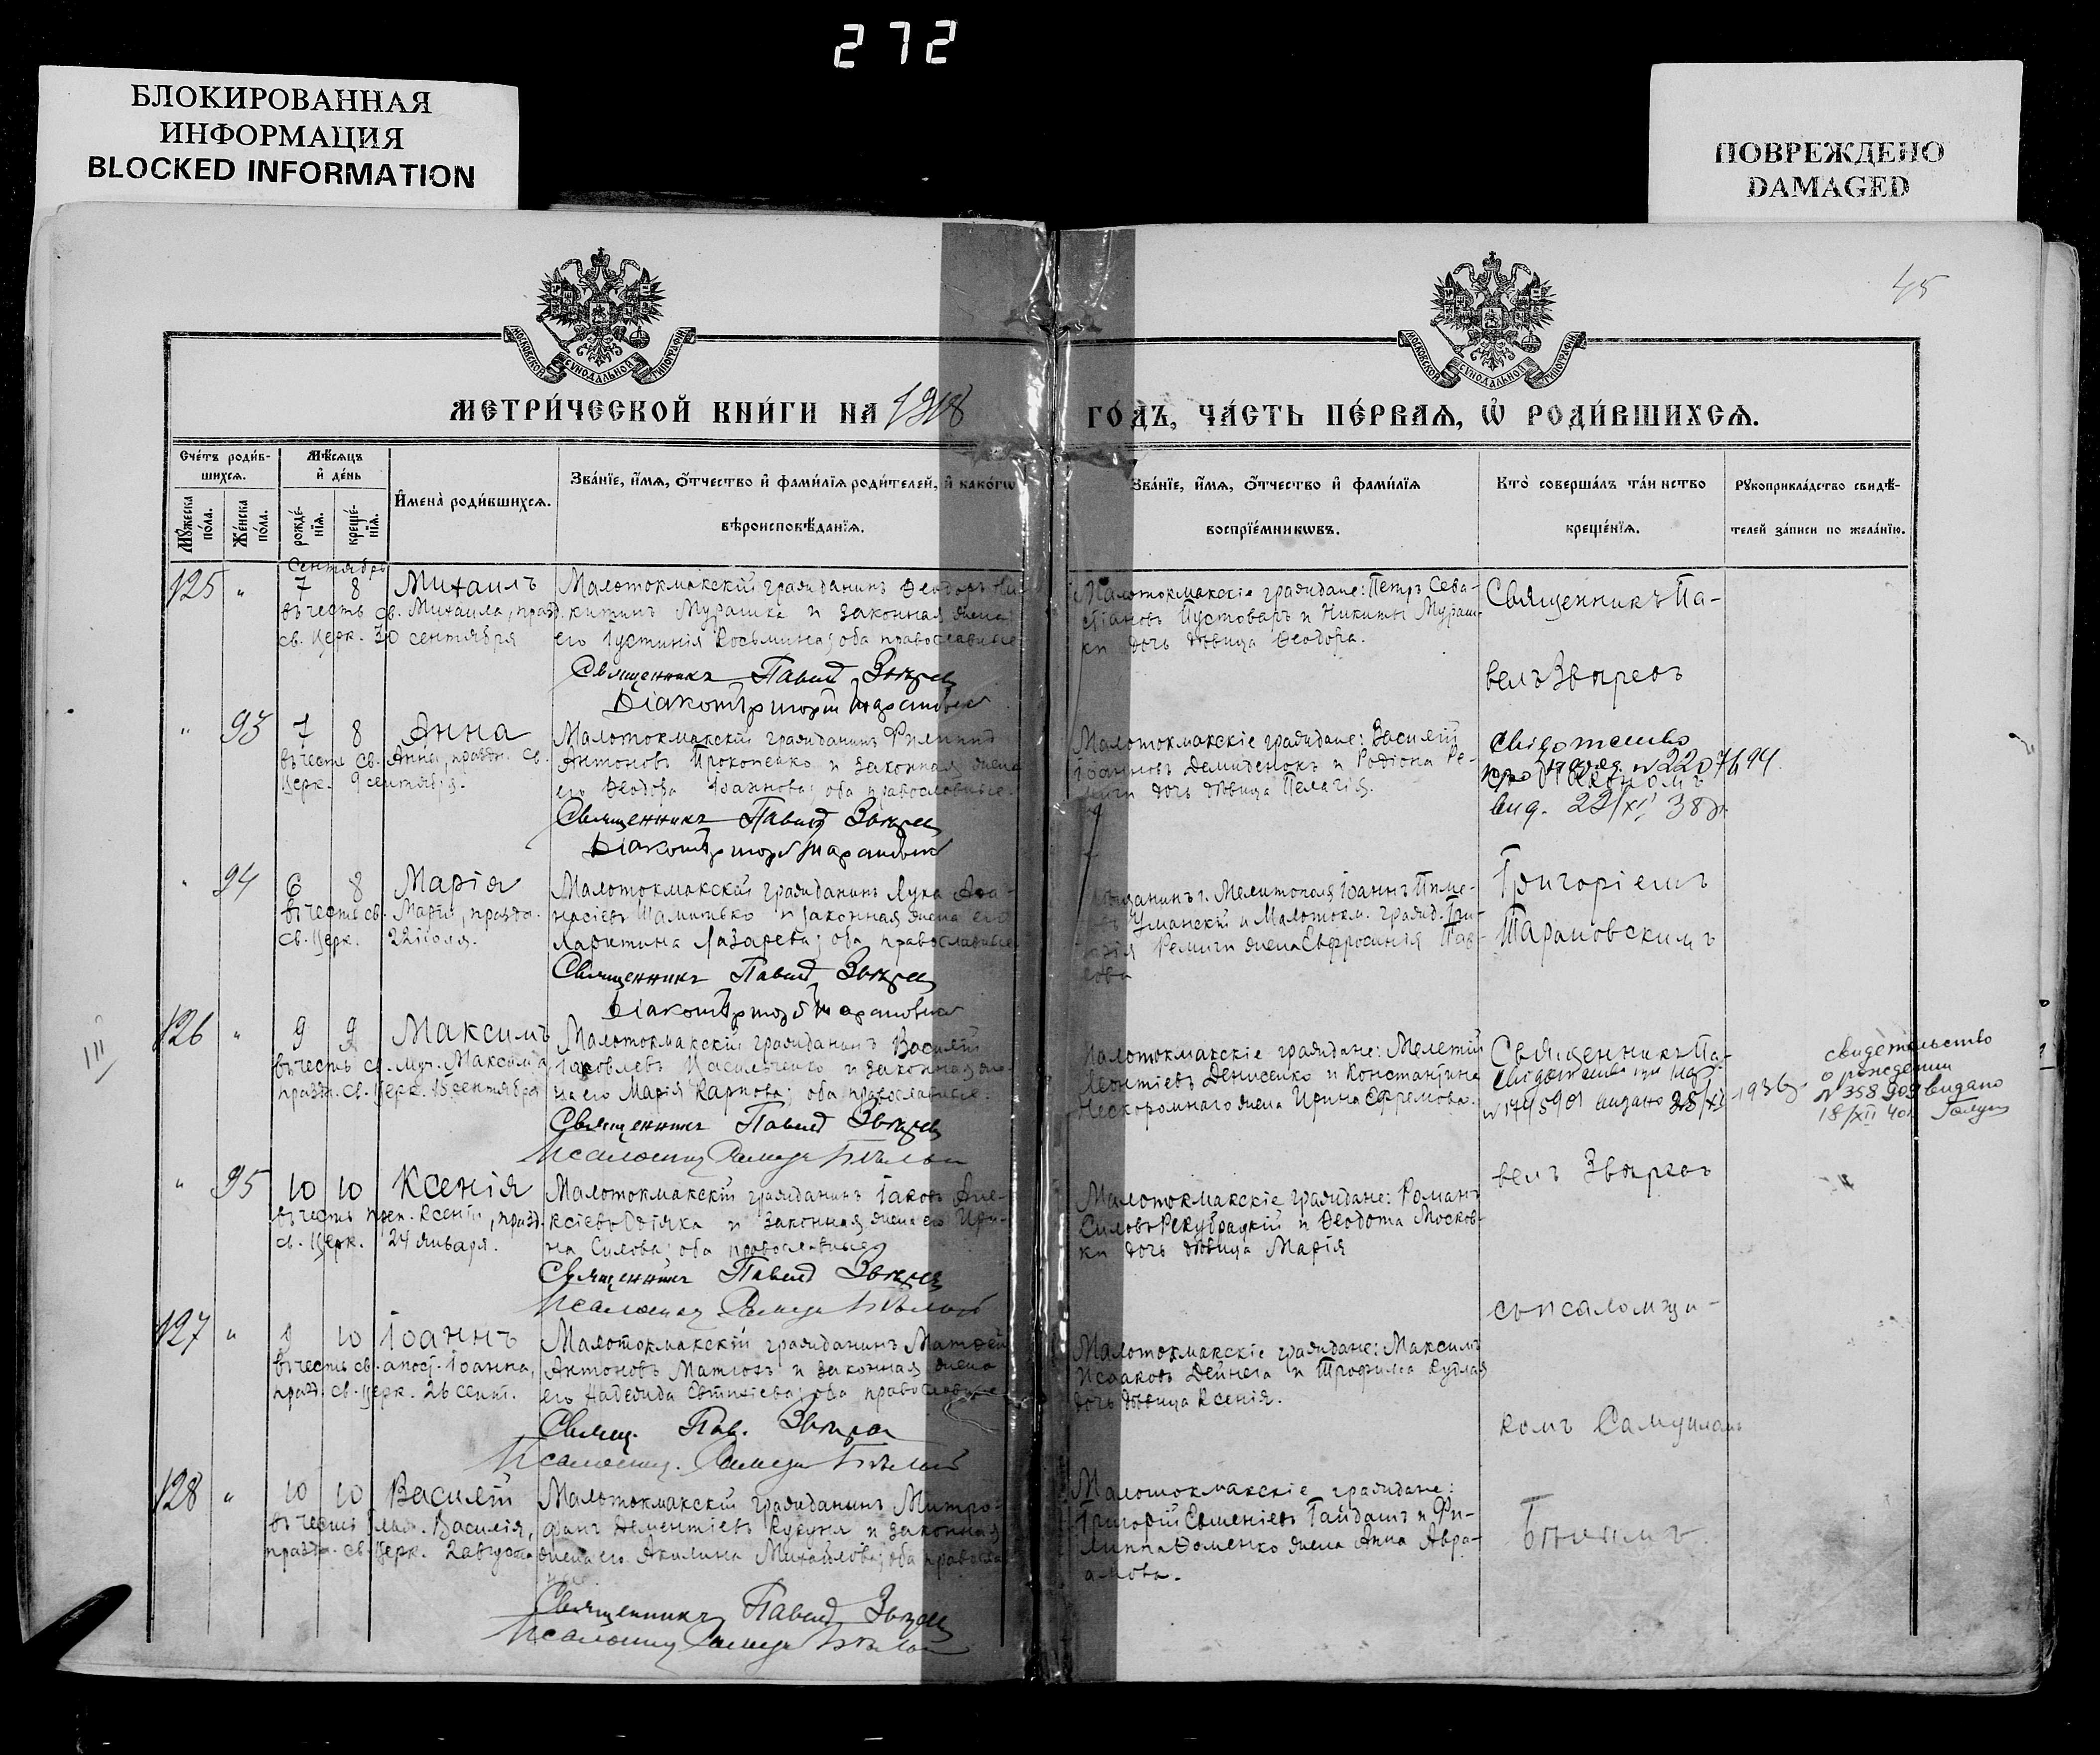 272
БЛОКИРОВАННАЯ
ИНФОРМАЦИЯ
BLOCKED INFORMATION
ПОВРЕЖДЕНО
DAMAGED
45
МОСКОВСКОЙ СѴНОДАЛЬНОЙ ТИПОГРАФІИ
МОСКОВСКОЙ СѴНОДАЛЬНОЙ ТИПОГРАФІИ
МЕТРИ́ЧЕСКОЙ КНИ́ГИ НА 1918
ГО́ДЪ, ЧА́СТЬ ПЕ́РВАЯ, Ѡ РОДИ́ВШИХСѦ.
Сче́тъ роди́в-
шихсѧ.
Мѣ́сѧцъ
и҆ де́нь
Мꙋ́жеска
по́ла.
Же́нска
по́ла.
рожде́-
нїѧ.
креще́-
нїѧ.
И҆мена̀ роди́вшихсѧ.
Зва́нїе, и҆́мѧ, ѻ҆́тчество и҆ фами́лїѧ роди́телей, и҆ како́гѡ
вѣроисповѣ́данїѧ.
Зва́нїе, и҆́мѧ, ѻ҆́тчество и҆ фами́лїѧ
воспрїе́мникѡвъ.
Кто̀ соверша́лъ та́инство
креще́нїѧ.
Рꙋкоприкла́дство свидѣ́-
телей за́писи по жела́нїю.
Сентябрь
125 " 7 8 Михаилъ
въ честь св. Михаила, празд.
св. Церк. 30 сентября
Малотокмакскій гражданинъ Ѳеодоръ Ни-
китинъ Мурашка и законная жена
его Іустинія Косьмина; оба православные
Священникъ Павелъ Звѣревъ
Діаконъ Григорій Тарановскій
Малотокмакскіе граждане: Петръ Сева-
стіановъ Пустоваръ и Никиты Мураш-
ки дочь дѣвица Ѳеодора.
Священникъ Па-
велъ Звѣревъ
" 93 7 8 Анна
въ честь св. Анны, праздн. св.
Церк. 9 сентября.
Малотокмакскій гражданинъ Филиппъ
Антоновъ Прокопенко и законная жена
его Ѳеодора Іоаннова; оба православные.
Священникъ Павелъ Звѣревъ
Діаконъ Григорій Тарановскій
Малотокмакскіе граждане: Василій
Іоанновъ Демиченокъ и Родіона Ре-
миги дочь дѣвица Пелагія.
вид. 22/XI 38 р.
" 94 6 8 Марія
въ честь св. Маріи, праздн.
св. Церк. 22 іюля.
Малотокмакскій гражданинъ Лука Аѳа-
насіевъ Шамитько и законная жена его
Харитина Лазарева; оба православные
Священникъ Павелъ Звѣревъ
Діаконъ Григорій Тарановскій
г. Мелитополя Іоаннъ
Уманскій и Малотокм. гражд.
Ремиги жена Евфросинія Пав-
лова
Григоріемъ
Тарановскимъ
126 " 9 9 Максимъ
въ честь св. муч. Максима
празд. св. Церк. 15 сентября
Малотокмакскій гражданинъ Василій
Іаковлевъ Васильченко и законная же-
на его Марія Карпова; оба православные.
Священникъ Павелъ Звѣревъ
Псаломщ. Самуилъ Бѣлый
Малотокмакскіе граждане: Мелетій
Леонтіевъ Денисенко и Константина
Нескоромнаго жена Ирина Ефремова.
Священникъ Па-
велъ Звѣревъ
свидетельство
о рождении
№ 358909 выдано
18/XII 40г.
" 95 10 10 Ксенія
въ честь преп. Ксеніи, празд.
св. Церк. 24 января.
Малотокмакскій гражданинъ Іаковъ Але-
ксіевъ и законная жена его Ири-
на Силова; оба православные
Священникъ Павелъ Звѣревъ
Псаломщ. Самуилъ Бѣлый
Малотокмакскіе граждане: Романъ
Силовъ и Ѳеодота Москов-
ки дочь дѣвица Марія
съ псаломщи-
127 " 9 10 Іоаннъ
въ честь св. апост. Іоанна,
празд. св. Церк. 26 сент.
Малотокмакскій гражданинъ Матѳей
Антоновъ Матюхъ и законная жена
его Надежда Евтихіева; оба православные
Священ. Пав. Звѣревъ
Псаломщ. Самуилъ Бѣлый
Малотокмакскіе граждане: Максимъ
Исааковъ Дейнега и Трофима Кудлая
дочь дѣвица Ксенія.
комъ Самуиломъ
128 " 10 10 Василій
въ честь блаж. Василія,
праздн. св. Церк. 2 августа
Малотокмакскій гражданинъ Митро-
фанъ Дементіевъ Кукуня и законная
жена его Акилина Михайлова; оба православ-
ные.
Священникъ Павелъ Звѣревъ
Псаломщ. Самуилъ Бѣлый
Малотокмакскіе граждане:
Григорій Евменіевъ Гайдашъ и Фи-
липпа Ѳоменко жена Анна Авра-
амова.
Бѣлымъ